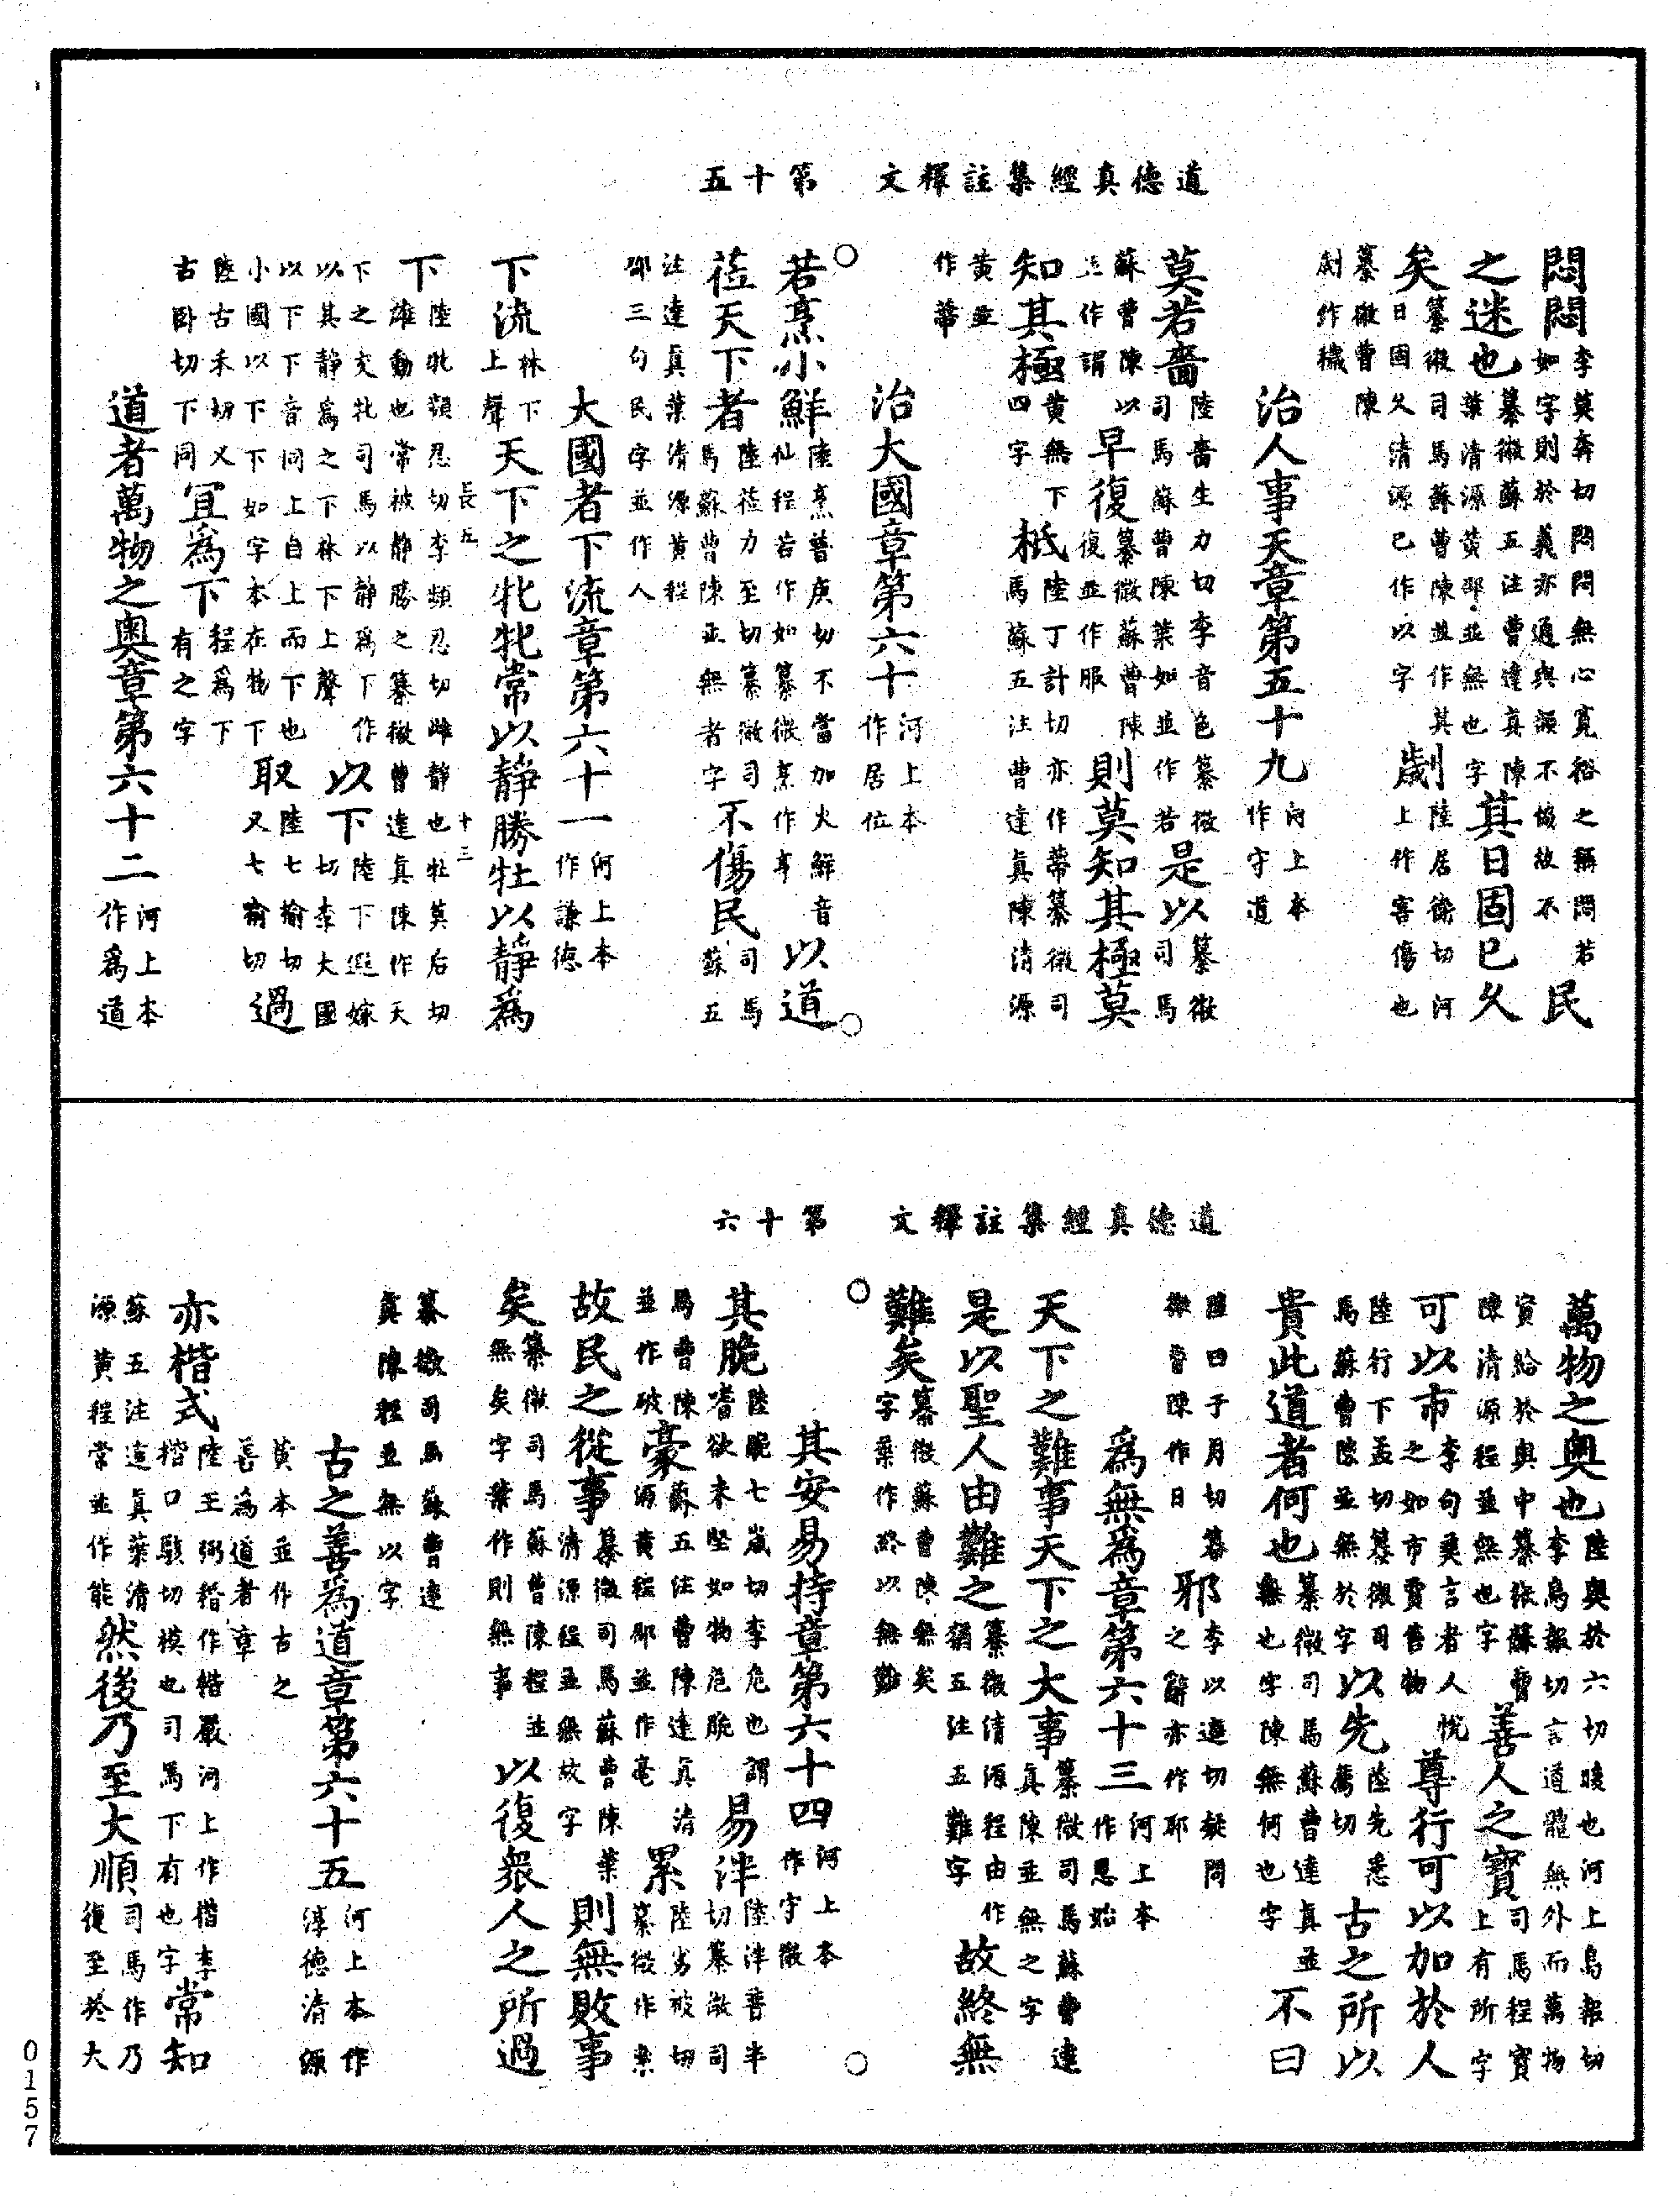 道德真經集註釋文　第十五
悶悶李莫奔切悶悶無心寬裕之稱悶若如字則於義亦通與源不愜故不民
之迷也纂微蘇五注曹達真陳葉清源黃邵並無也字其日固已久
矣纂微司馬蘇曹陳並作其日固久清源已作以字劌陸居衛切河上作害傷也
纂微曹陳劌作穢
治人事天章第五十九河上本作守道
莫若嗇陸嗇生力切李音色纂微司馬蘇曹陳葉如並作若是以纂微司馬
蘇曹陳以並作謂早復纂微蘇曹陳復並作服則莫知其極莫
知其極黃無下四字柢陸丁計切亦作蒂纂微司馬蘇五注曹達真陳清源
黃並作蒂
治大國章第六十河上本作居位
若烹小鮮陸烹普庚切不當加火鮮音仙程若作如纂微烹作亨以道
莅天下者陸莅力至切纂微司馬蘇曹陳並無者字不傷民司馬蘇五
注達真葉清源黃程邵三句民字並作人
大國者下流章第六十一河上本作謙德
下流林下上聲天下之牝牝常以靜勝牡以靜爲
長五　十三
下陸牝頻忍切李頻忍切雌靜也牡莫后切雄動也常被靜勝之纂微曹達真陳作天
下之交牝司馬以靜爲下作以其靜爲之下林下上聲以下陸下遐嫁切李大國
以下下音同上自上而下也小國以下下如字本在物下取陸七揄切又七喻切過
陸古禾切又古臥切下同宜爲下程爲下有之字
道者萬物之奧章第六十二河上本作爲道
道德真經集註釋文　第十六
萬物之奧也陸奧於六切暖也河上烏報切李烏報切言道體無外而萬物
資給於奧中纂微蘇曹陳清源程並無也字善人之寶司馬程寶上有所字
可以市李句爽言者人悅之如市賈售物尊行可以加於人
陸行下孟切纂微司馬蘇曹陳並無於字以先陸先悉薦切古之所以
貴此道者何也纂微司馬蘇曹達真並無也字陳無何也字不曰
陸曰于月切纂微曹陳作日邪李以遮切疑問之辭亦作耶
爲無爲章第六十三河上本作恩始
天下之難事天下之大事纂微司馬蘇曹達真陳並無之字
是以聖人由難之纂微清源程由作猶五注五難字故終無
難矣纂微蘇曹陳無矣字葉作終以無難
其安易持章第六十四河上本作守微
其脆陸脆七歲切李危也謂嗜欲未堅如物危脆易泮陸泮普半切纂微司
馬曹陳並作破豪蘇五注曹陳達真清源黃程邵並作毫累陸劣被切纂微作絫
故民之從事纂微司馬蘇曹陳葉清源程並無故字則無敗事
矣纂微司馬蘇曹陳程並無矣字葉作則無事以復衆人之所過
纂微司馬蘇曹達真陳程並無以字
古之善爲道章第六十五河上本作淳德清源
黃本並作古之善爲道者章
亦楷式陸王弼稽作楷嚴河上作楷李楷口駭切模也司馬下有也字常知
蘇五注達真葉清源黃程常並作能然後乃至大順司馬作乃復至於大
0157